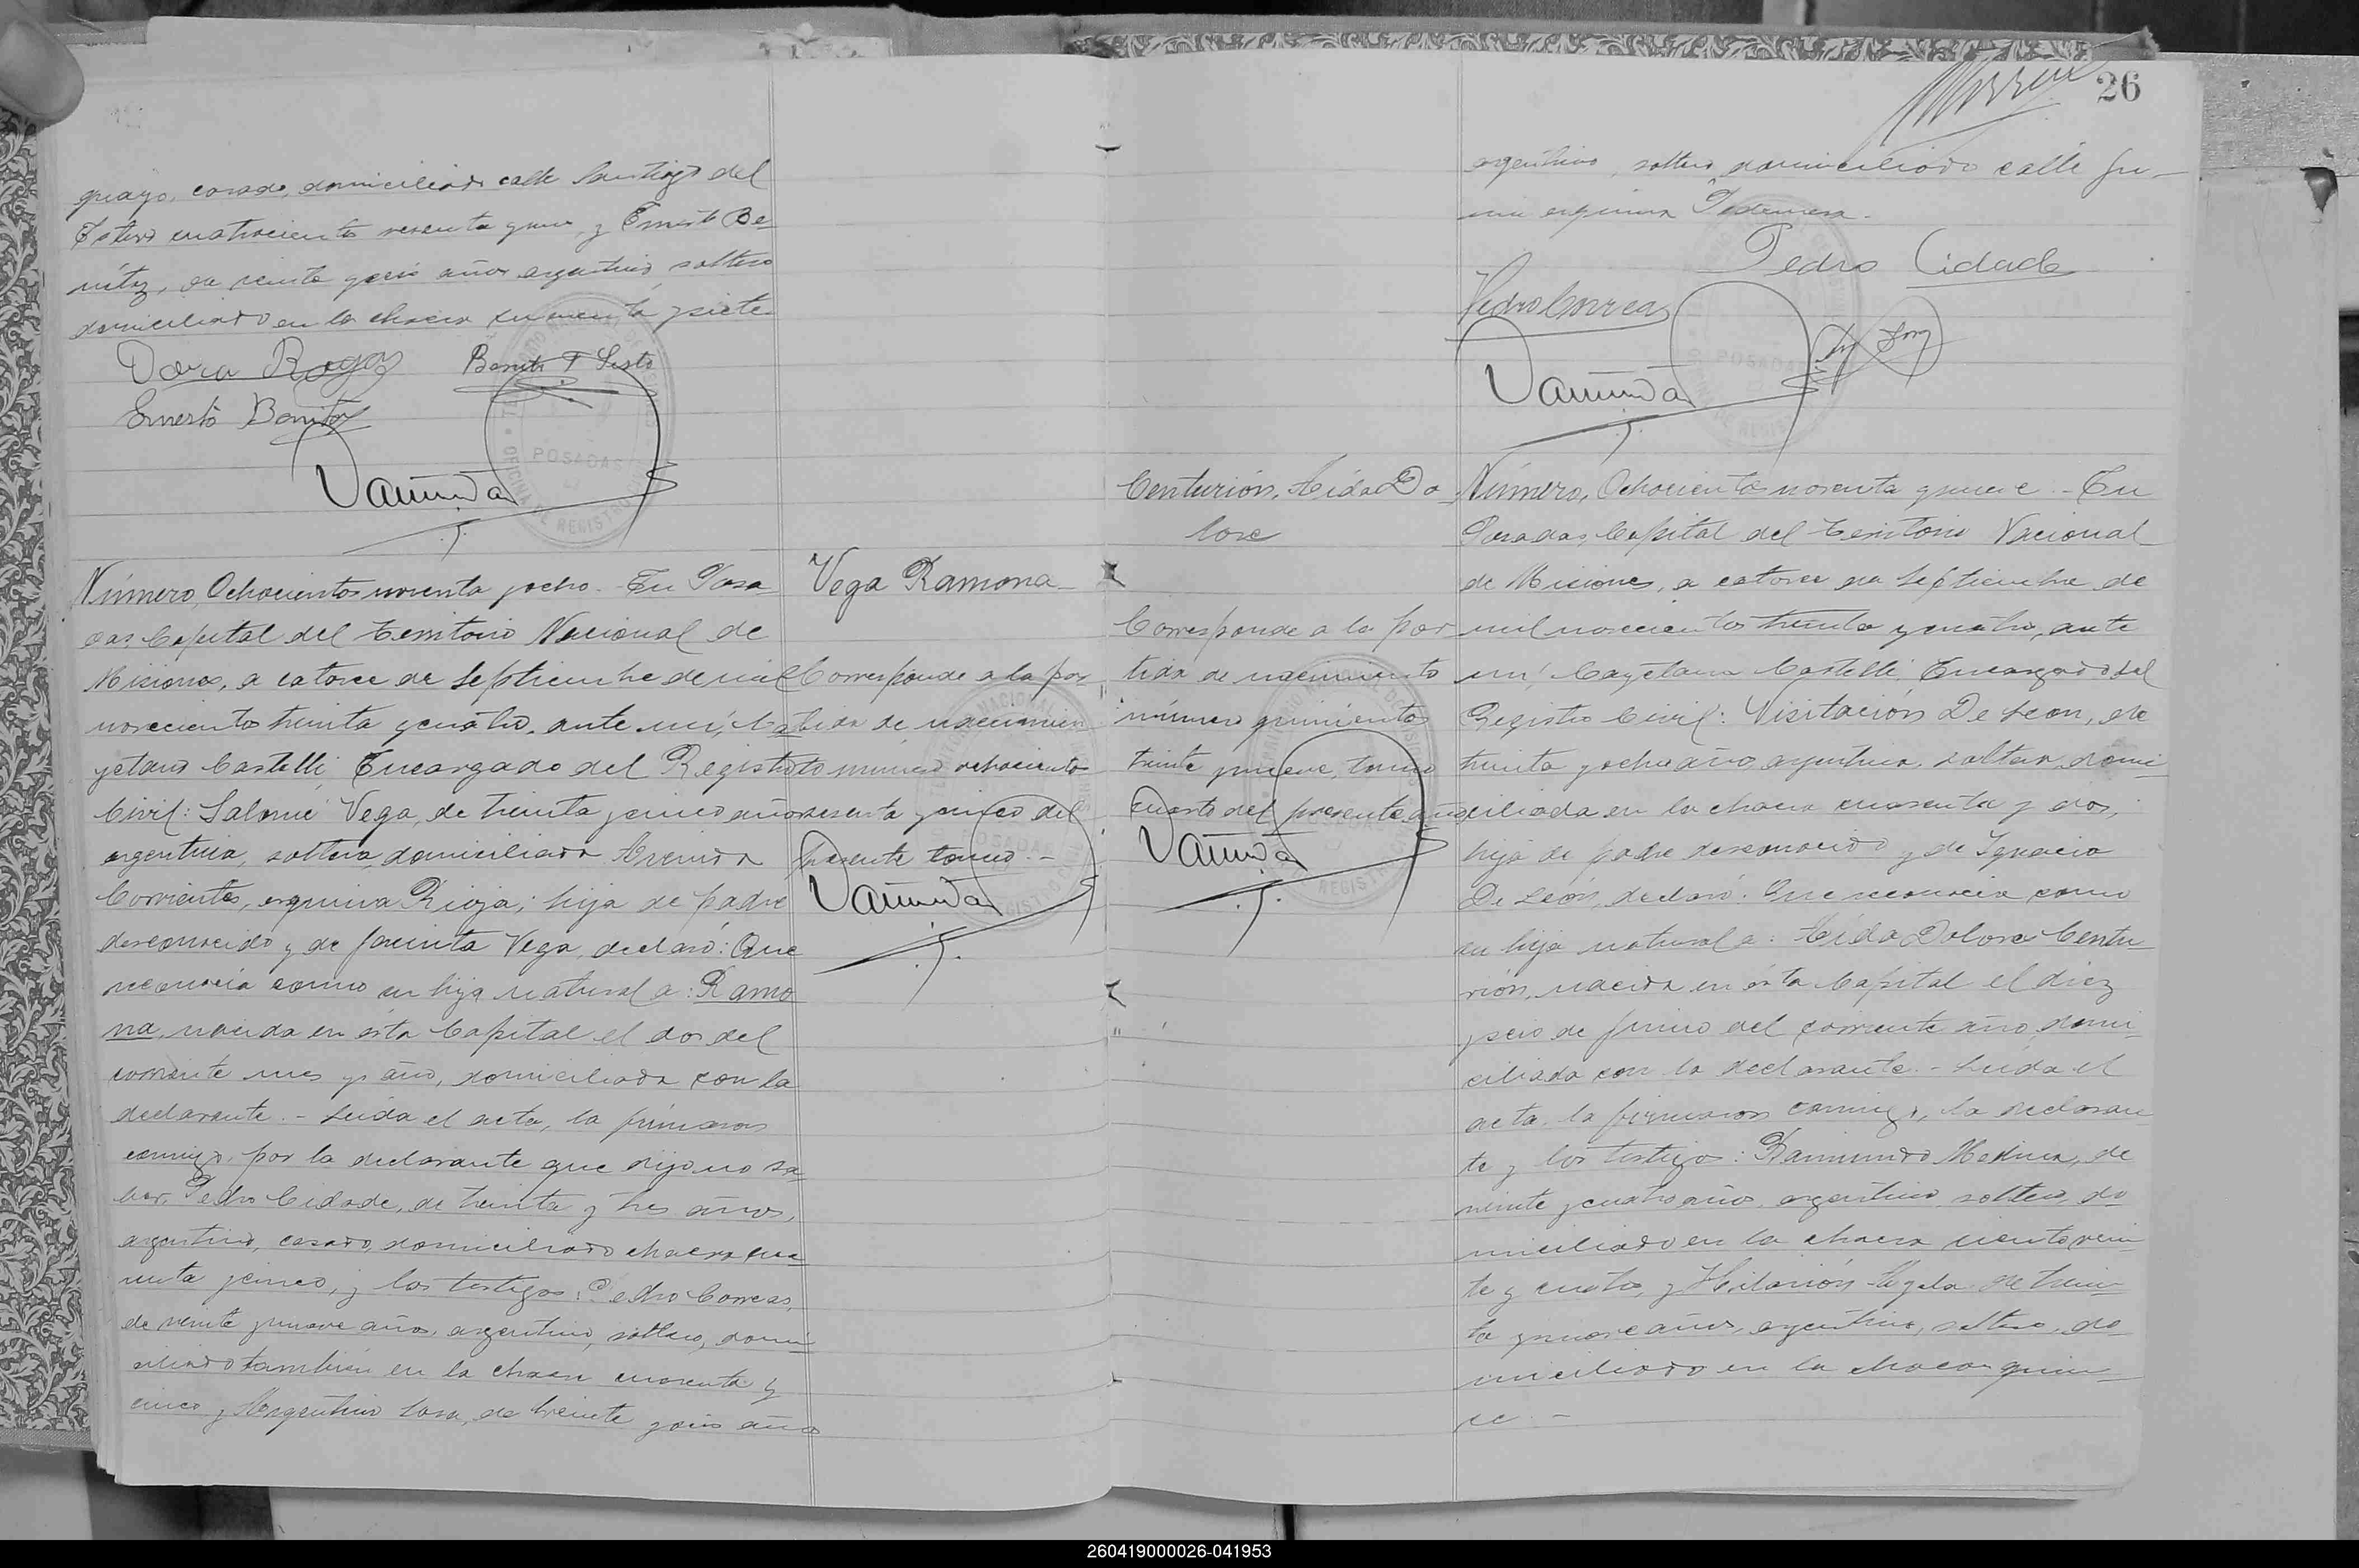 guayo, casado, domiciliado calle Santiago del
Estero cuatrocientos sesenta y uno, y Ernesto Be-
nítez, de veinte y seis años argentino, soltero
domiciliado en la chacra cuarenta y siete
Dora Rogas
Ernesto Benitez
POSADAS
Número, Ochocientos noventa y ocho.- En Posa
das Capital del Territorio Nacional de
Misiones, a catorce de Septiembre de mil
novecientos treinta y cuatro, ante mí, Ca
yetano Castelli, Encargado del Registro
Civil: Salomé Vega, de treinta y cinco años
argentina, soltera, domiciliada Avenida
Corrientes, esquina Rioja; hija de padre
desconocido y de Jacinta Vega, declaró: Que
reconocía como su hija natural a: Ramo
na, nacida en ésta Capital el dos del
corriente mes y año, domiciliada con la
declarante.- Leída el acta, la firmaron
conmigo, por la declarante que dijo no sa
ber, Pedro Cidade, de treinta y tres años,
argentino, casado, domiciliado chacra cua
renta y cinco, y los testigos: Pedro Correas,
de veinte y nueve años, argentino, soltero, domi
ciliado también en la chacra cuarenta y
cinco y Argentino Sosa, de veinte y seis años
Vega Ramona
Corresponde a la par
tida de nacimien
to número ochocientos
sesenta y cinco del
presente tomo.-
26
argentino, soltero, domiciliado calle Ju-
nin esquina
Pedro Cidade
Pedro Correas
POSADAS
Centurión, Aída Do
lores
Corresponde a la par
tida de nacimiento
número quinientos
treinta y nueve, tomo
cuarto del presente año
Número, Ochocientos noventa y nueve.- En
Posadas, Capital del Territorio Nacional
de Misiones, a catorce de Septiembre de
mil novecientos treinta y cuatro, ante
mí, Cayetano Castelli, Encargado del
Registro Civil: Visitación De León, de
treinta y ocho años argentina, soltera, domi-
ciliada en la chacra cuarenta y dos,
hija de padre desconocido y de Ignacia
De León, declaró: Que reconocía como
su hija natural a: Aída Dolores Centu
rión, nacida en ésta Capital el diez
y seis de Junio del corriente año, domi-
ciliada con la declarante.- Leída el
acta, la firmaron conmigo, la declaran
te y los testigos: Raimundo Medina, de
veinte y cuatro años, argentino, soltero, do
miciliado en la chacra ciento vein
te y cuatro, y Hilarión de trein
ta y nueve años, argentino, soltero, do
miciliado en la chacra quin-
ce.-
260419000026-041953